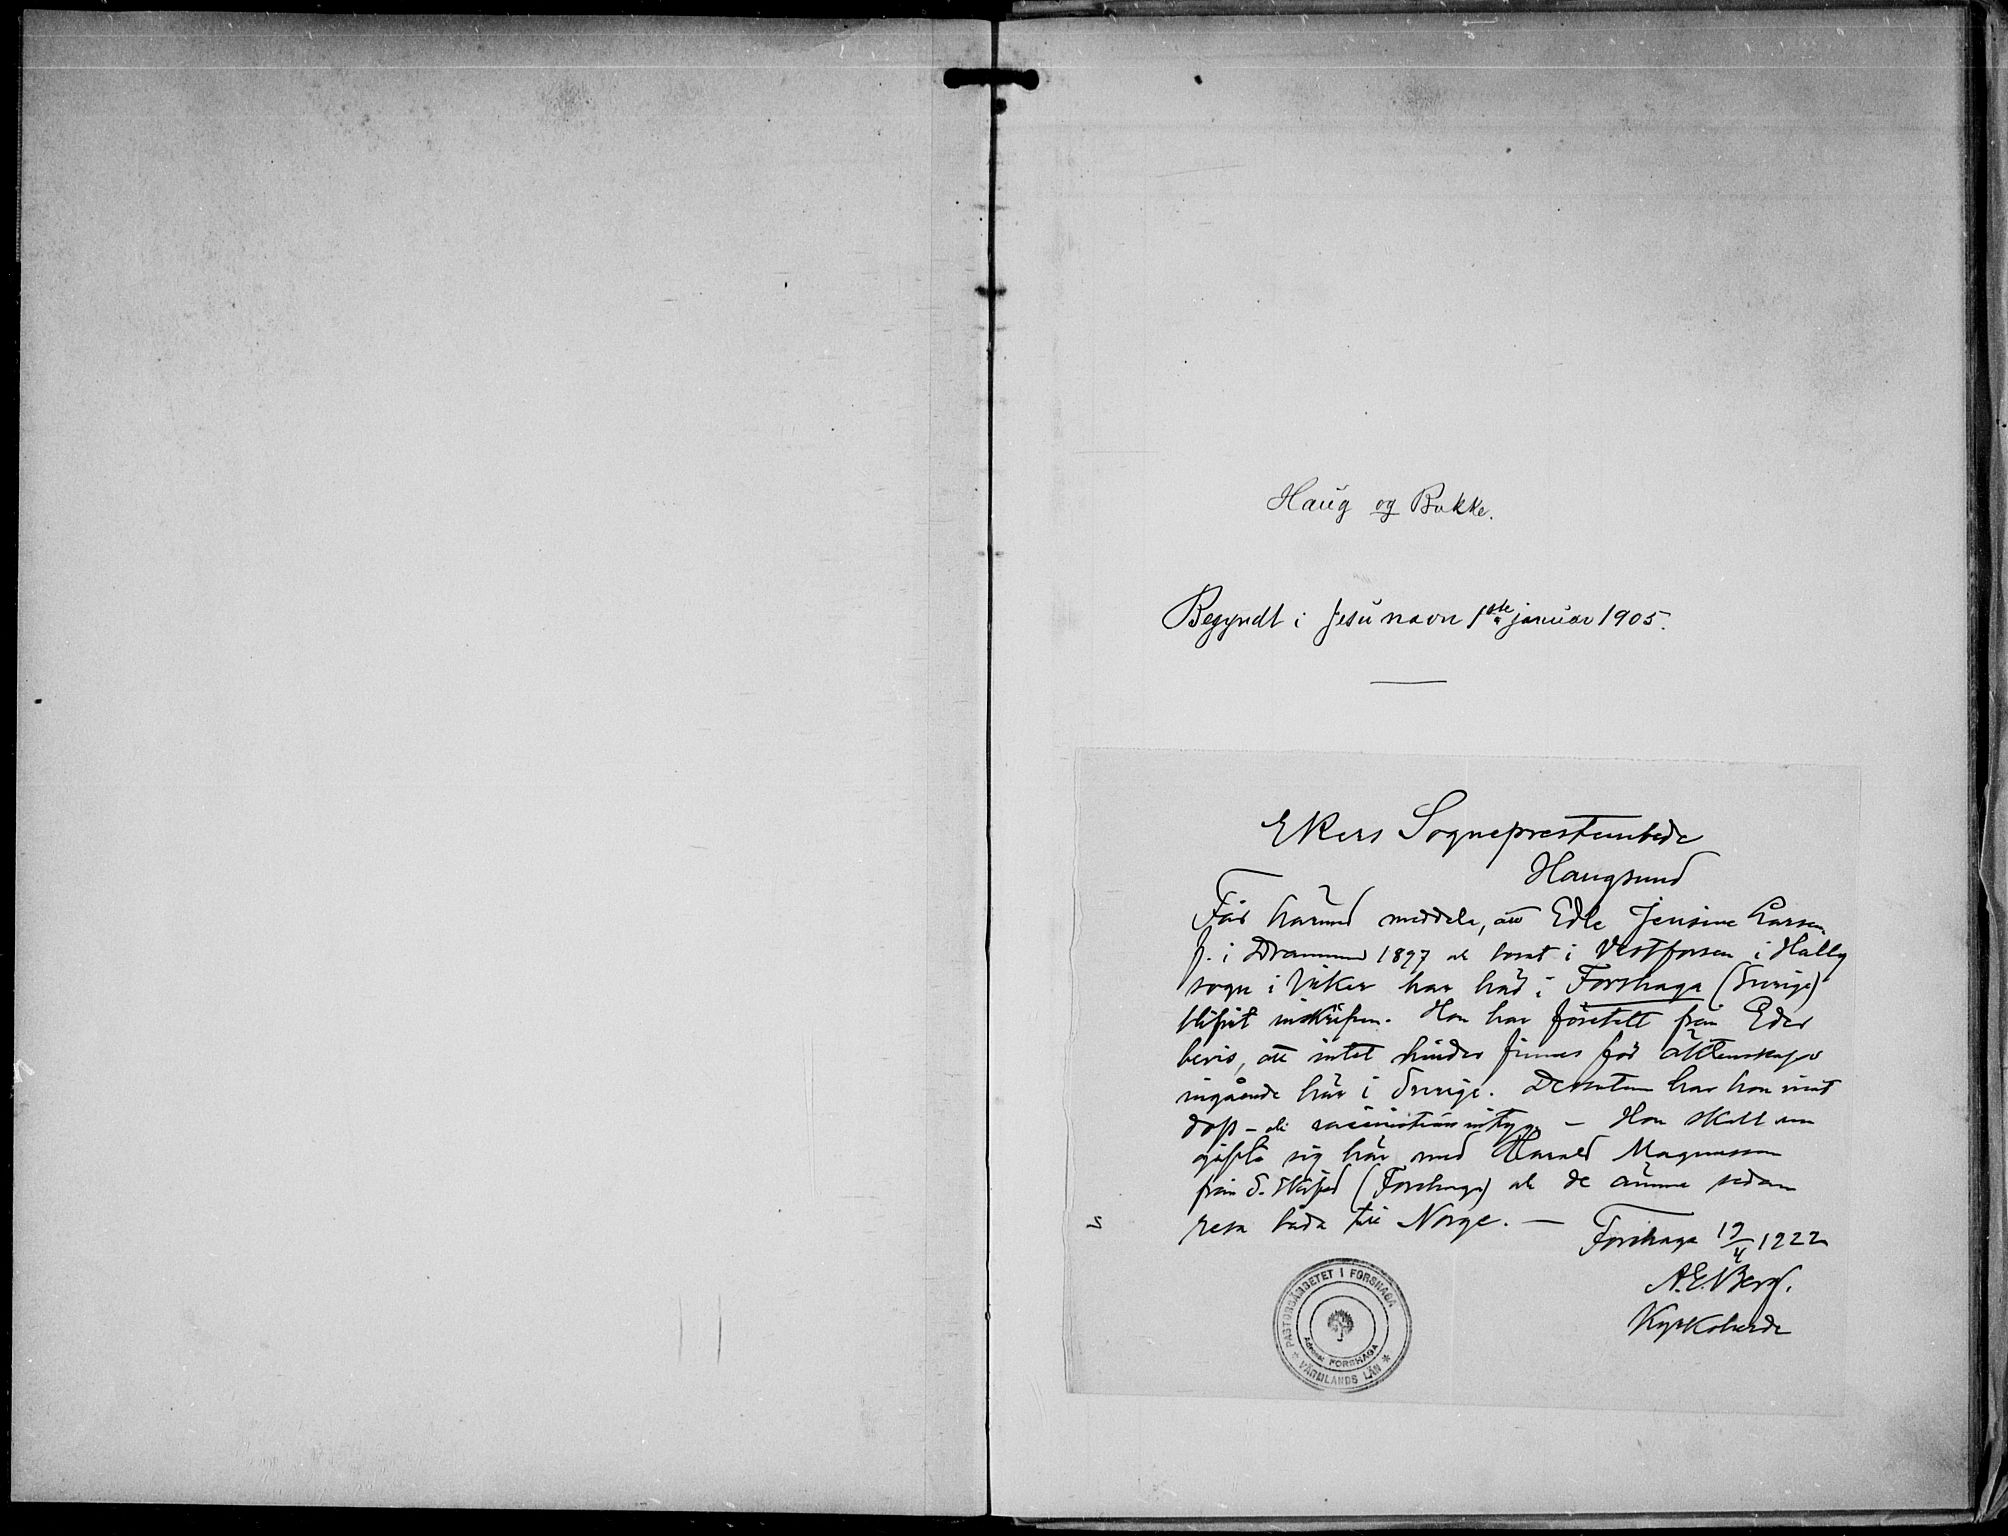 Haug og Bakke.
Begyndt i Jesu navn 1ste januar 1905.
Ekers Sogneprestembede
Haugsund
Får härmed meddela, att Edle Jensine Larsen
f. i Drammen 1897 ok bosat i Vestfossen i
sogn i Eker har här i Forshaga (Sverige)
blifvit inskrifven. Hon har företett från Eder
bevis, att intet hinder finnes för äktenskaps
ingående här i Sverige. Dessutom har hon
dop - ok vaccinationsintyg. — Hon skall nu
gifta sig här med Harald Magnusson
från (Forshaga) ok de ämna sedan
resa båda till Norge. —
Forshaga 19/4 1922
A. E. Berg.
Kyrkoherde
PASTORSÄMBETET I FORSHAGA
VÄRMLANDS LÄN
Adress: FORSHAGA